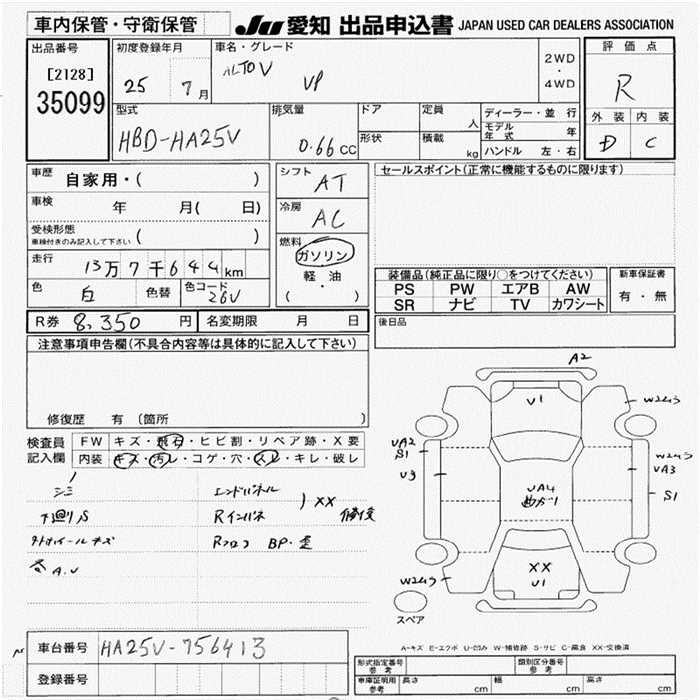 車内保管・守衛保管
JU 愛知 出品申込書 JAPAN USED CAR DEALERS ASSOCIATION
出品番号
[2128]
35099
初度登録年月
25 7月
車名・グレード
ALTO V VP
2WD
・
4WD
評価点
R
外装 内装
D C
型式
HBD-HA25V
排気量
0.66cc
ドア
形状
定員
人
積載
kg
ディーラー・並行
モデル年式 年
ハンドル 左・右
車歴
自家用・( )
車検
年 月( 日)
受検形態
車検付きのみ記入して下さい ( )
走行
13万7千644km
色 白 色替 色コード 26U
シフト AT
冷房 AC
燃料
ガソリン
軽・油
( ・ )
セールスポイント(正常に機能するものに限ります)
装備品(純正品に限り○をつけてください)
PS PW エアB AW
SR ナビ TV カワシート
新車保証書
有・無
後日品
R券 8,350円 名変期限 月 日
注意事項申告欄(不具合内容等は具体的に記入して下さい)
修復歴 有 (箇所 )
検査員
記入欄
FW キズ・飛石・ヒビ割・リペア跡・X要
内装 キズ・汚レ・コゲ・穴・スレ・キレ・破レ
シミ
下廻りS
外ホイールキズ
A.U
エンドパネル
Rインパネ
XX
修復
Rフロア BP・歪
A2
U1
W2ｷｽ
UA2
S1
U3
UA4
曲がり
W2ｷｽ
UA3
S1
XX
U1
W2ｷｽ
スペア
A-キズ E-エクボ U-凹み W-補修跡 S-サビ C-腐食 XX-交換済
車台番号 HA25V-756413
登録番号
形式指定番号
参考
類別区分番号
参考
車庫証明用
参考
長さ cm 幅 cm 高さ cm